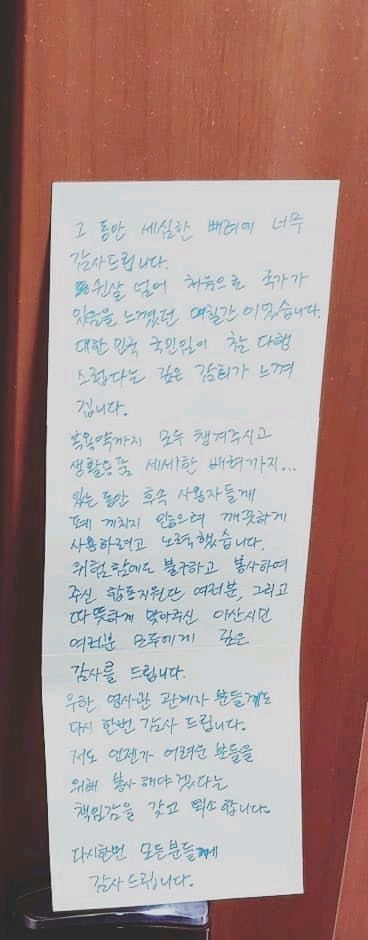 그 동안 세심한 배려에 너무
감사드립니다.
쉰살 넘어 처음으로 국가가
있음을 느꼈던 며칠간 이었습니다.
대한민국 국민임이 참 다행
스럽다는 깊은 감회가 느껴
집니다.
복용약까지 모두 챙겨주시고
생활용품 세세한 배려까지...
있는 동안 후속 사용자들게
폐 끼치지 않으며 깨끗하게
사용하려고 노력했습니다.
위험함에도 불구하고 봉사하여
주신 합동지원단 여러분, 그리고
따뜻하게 맞아주신 아산시민
여러분 모두에게 깊은
감사를 드립니다.
우한 영사관 관계자 분들게도
다시 한번 감사 드립니다.
저도 언젠가 어려운 분들을
위해 봉사 해야 겠다는
책임감을 갖고 퇴소 합니다.
다시한번 모든분들께
감사 드립니다.